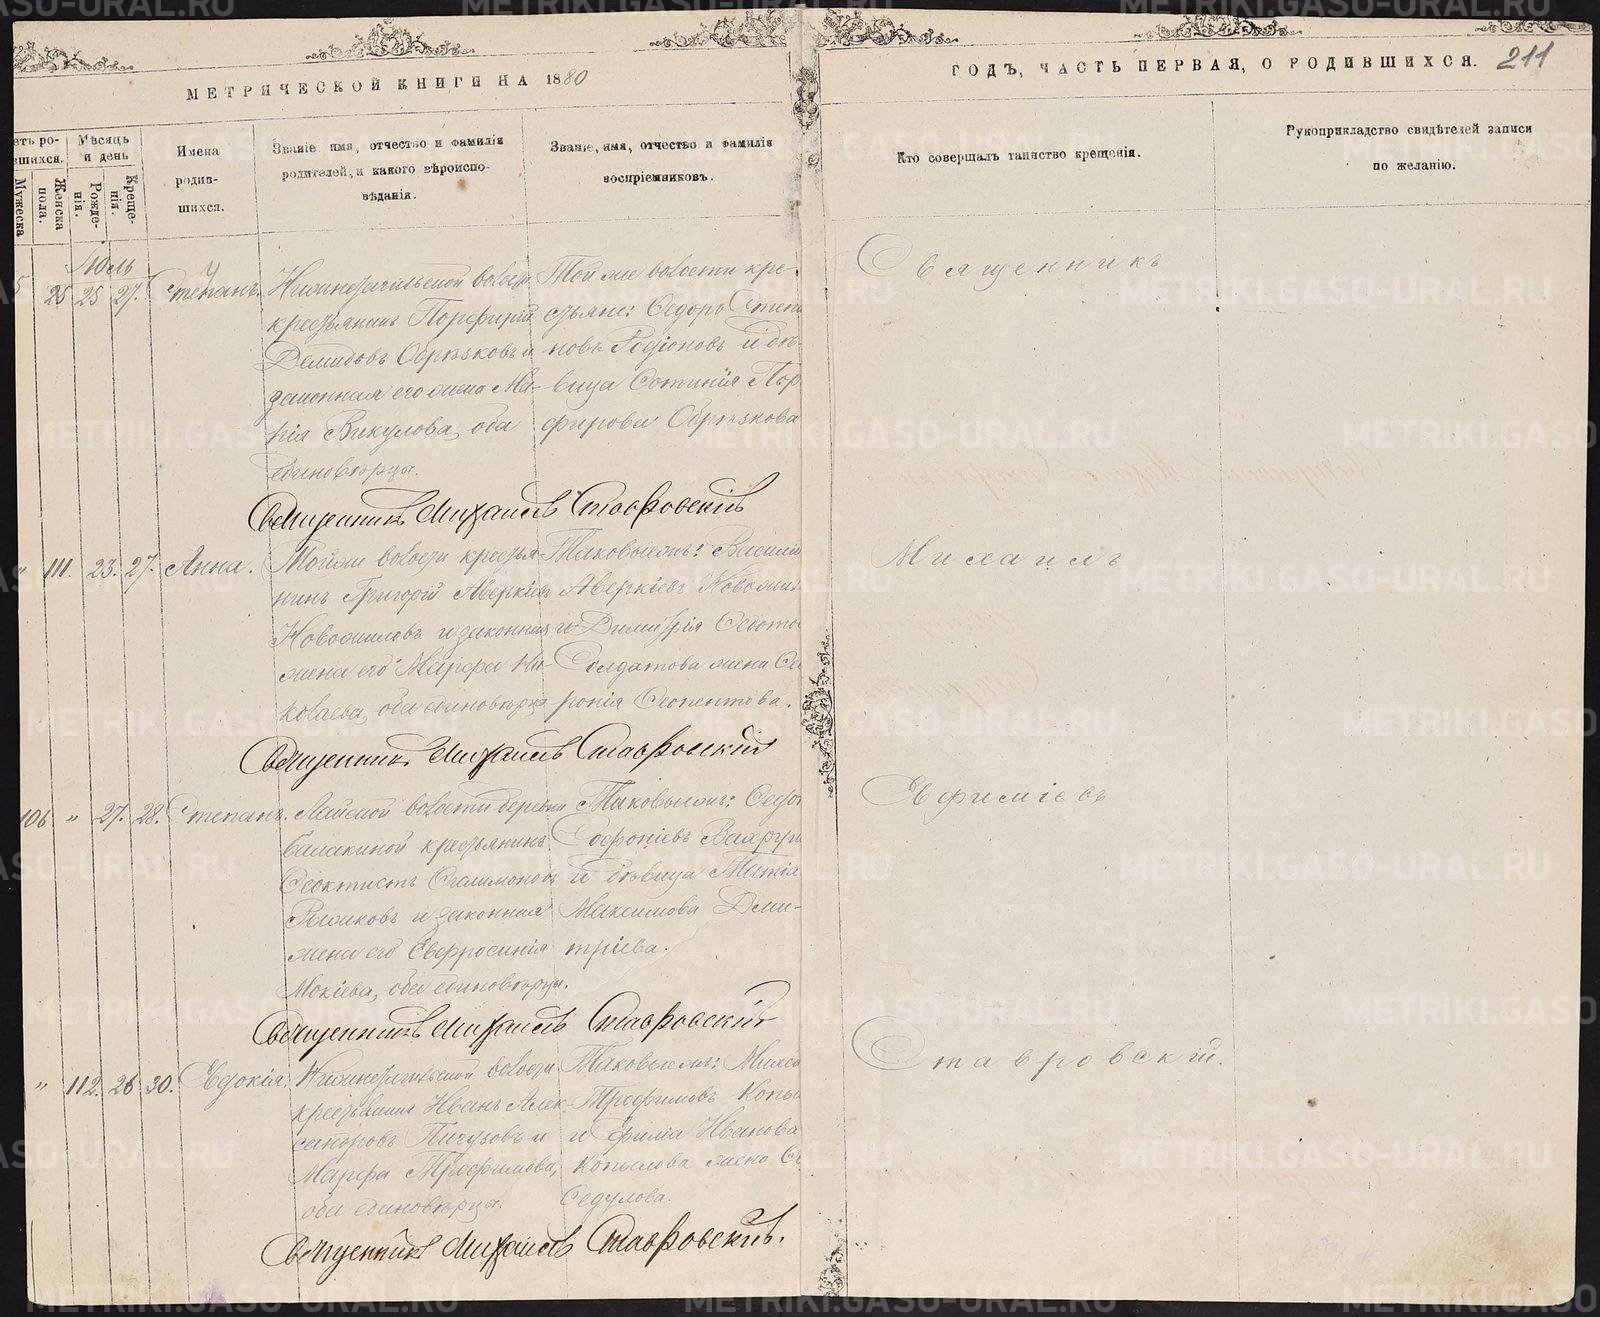 МЕТРИЧЕСКОЙ КНИГИ НА 1880
ГОДЪ, ЧАСТЬ ПЕРВАЯ, О РОДИВШИХСЯ. 211
Мужеска
Женска пола.
Мѣсяцъ и день
Рожденія.
Крещенія.
Имена родившихся.
Званіе, имя, отчество и фамилія
родителей, и какого вѣроиспо-
вѣданія.
Званіе, имя, отчество и фамилія
воспріемниковъ.
Кто совершалъ таинство крещенія.
Рукоприкладство свидѣтелей записи
по желанію.
Юль
25 27. Степанъ.
крестьянинъ Порфирій
Демидовъ Обрѣзковъ и
законная его жена Ма-
рія Викулова, оба
единовѣрцы.
Той же волости кре-
стьяне: Ѳедоръ Степа
новъ Родіоновъ и дѣ-
вица Фотинія Пор
фирова Обрѣзкова
Священникъ Михаилъ Ставровскій
111. 23. 27. Анна.
Той же волости крестья-
нинъ Григорій Аверкіевъ
Новожиловъ и законная
жена его Марфа Ни-
колаева, оба единовѣрца
Таковыежъ: Василій
Аверкіевъ Новожил
и Димитрія
Солдатова жена
ронія
Священникъ Михаилъ Ставровскій
106 " 27. 28. Степанъ.
Лайской волости деревни
Балакиной крестьянинъ
Ѳеоктистъ
Рыжиковъ и законная
жена его Евфросинія
Мокіева, оба единовѣрцы.
Таковыежъ: Ѳедо
Софроніевъ
и дѣвица Татіа
Максимова Дми-
тріева.
Священникъ Михаилъ Ставровскій
" 112. 26 30. Евдокія.
крестьянинъ Иванъ Алек-
сандровъ Пичуговъ и
Марфа Трофимова,
оба единовѣрцы.
Таковыежъ:
Трофимовъ Копы
и Иванова
Копылова жена
Седулова.
Священникъ Михаилъ Ставровскій.
Священникъ
Михаилъ
Евфиміевъ
Ставровскій.
METRIKI.GASO-URAL.RU